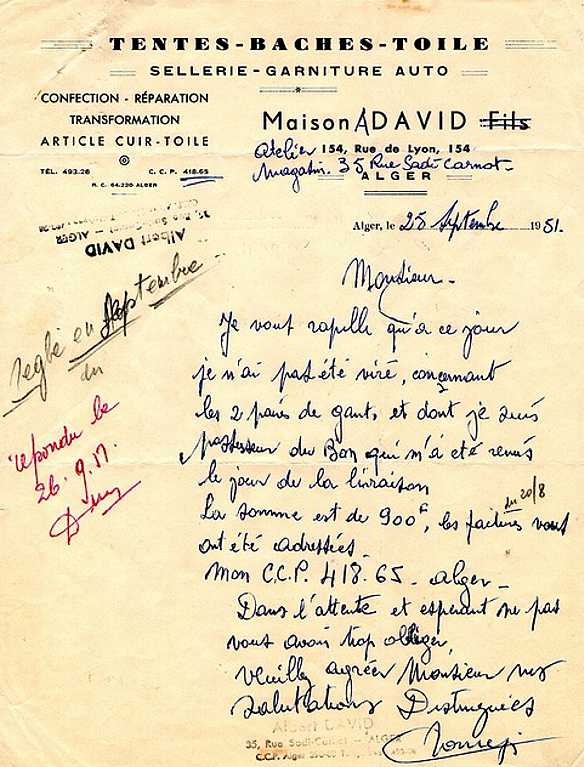 TENTES-BACHES-TOILE
SELLERIE-GARNITURE AUTO
CONFECTION - RÉPARATION
TRANSFORMATION
ARTICLE CUIR-TOILE
TÉL. 493.26 C. C. P. 418.65
R. C. 64.220 ALGER
Maison ADAVID Fils
atelier 154, Rue de Lyon, 154
Magasin. 35 Rue Sadi Carnot-
ALGER
Albert DAVID
35, Rue Sadi-Carnot - ALGER
Alger, le 25 Septembre 1951.
Monsieur -
Je vous rapelle qu'à ce jour
je n'ai pas été viré, concernant
les 2 paires de gants, et dont je suis
possesseur du Bon qui m'a été remis
le jour de la livraison
La somme est de 900f, les factures du 20/8 vous
ont été adressées.
Mon C.C.P. 418.65 - alger -
Dans l'attente et esperant ne pas
vous avoir trop obliger,
veuillez agréer Monsieur mes
salutations Distinguées
Reglé en Septembre
repondu le
26.9.51.
Albert DAVID
35, Rue Sadi-Carnot - ALGER
C.C.P. Alger